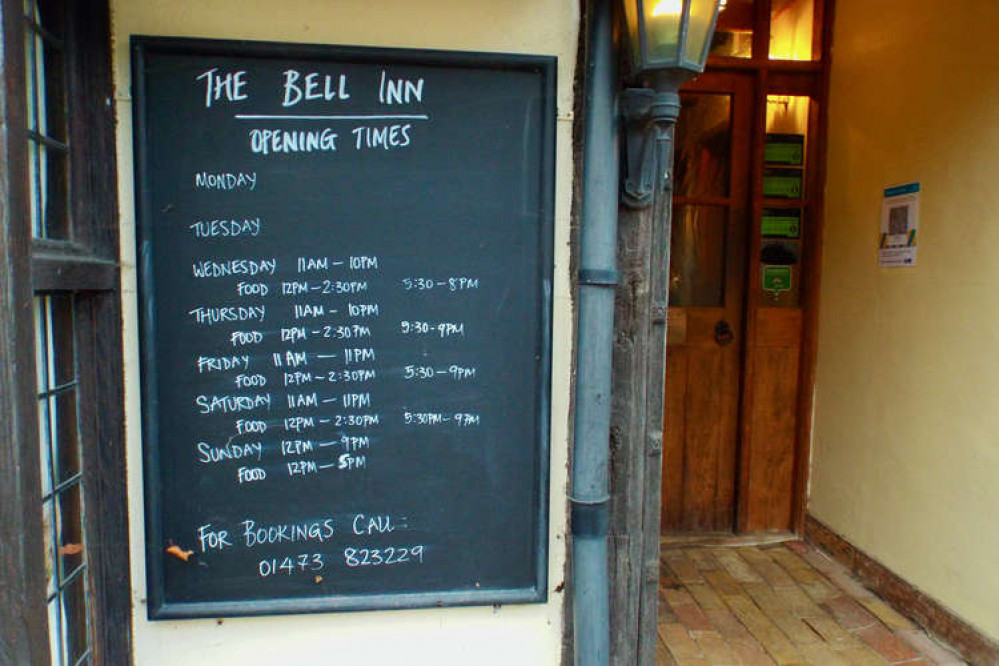 THE BELL INN
OPENING TIMES
MONDAY
TUESDAY
WEDNESDAY 11AM – 10PM
FOOD 12PM – 2:30PM 5:30 – 8PM
THURSDAY 11AM – 10PM
FOOD 12PM – 2:30PM 5:30 – 9PM
FRIDAY 11AM – 11PM
FOOD 12PM – 2:30PM 5:30 – 9PM
SATURDAY 11AM – 11PM
FOOD 12PM – 2:30PM 5:30PM – 9PM
SUNDAY 12PM – 9PM
FOOD 12PM – 5PM
FOR BOOKINGS CALL :
01473 823229